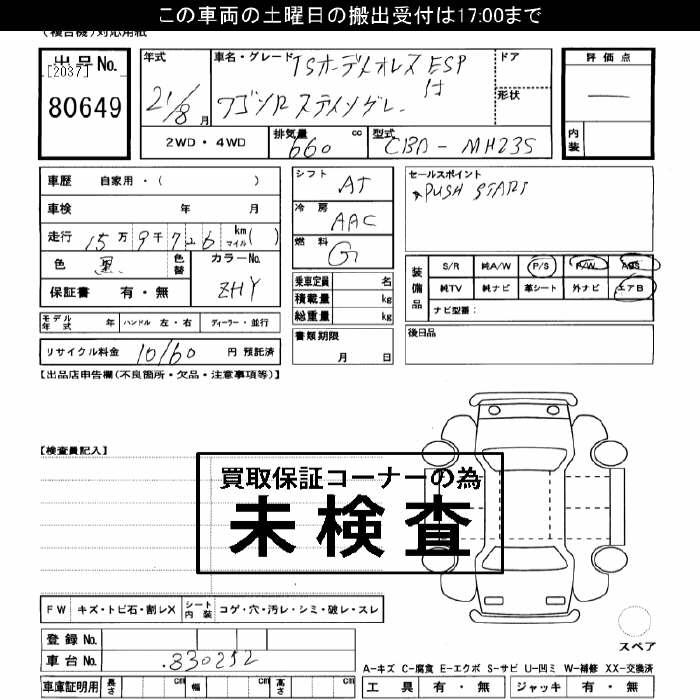 この車両の土曜日の搬出受付は17:00まで
(複合機)対応用紙
出品No.
[2037]
80649
年式
21/8月
車名・グレード
TSオーディオレス ESP付
ワゴンR スティングレー
ドア
形状
評価点
―
内装
2WD・4WD
排気量 660 cc
型式 CBA-MH23S
車歴 自家用・( )
車検 年 月
走行 15万9千726 kmマイル( )
色 黒 色替 カラーNo. ZHY
保証書 有・無
モデル年式 年 ハンドル 左・右 ディーラー・並行
リサイクル料金 10160 円 預託済
シフト AT
冷房 AAC
燃料 G
乗車定員 名
積載量 kg
総重量 kg
書類期限
月 日
セールスポイント
*PUSH START
装備品
S/R 純A/W P/S P/W ABS
純TV 純ナビ 革シート 外ナビ エアB
ナビ型番:
後日品
【出品店申告欄(不良箇所・欠品・注意事項等)】
【検査員記入】
買取保証コーナーの為
未検査
FW キズ・トビ石・割レX シート内装 コゲ・穴・汚レ・シミ・破レ・スレ
登録No.
車台No. .830252
スペア
A-キズ C-腐食 E-エクボ S-サビ U-凹ミ W-補修 XX-交換済
車庫証明用 長さ cm 幅 cm 高さ cm
工具 有・無 ジャッキ 有・無